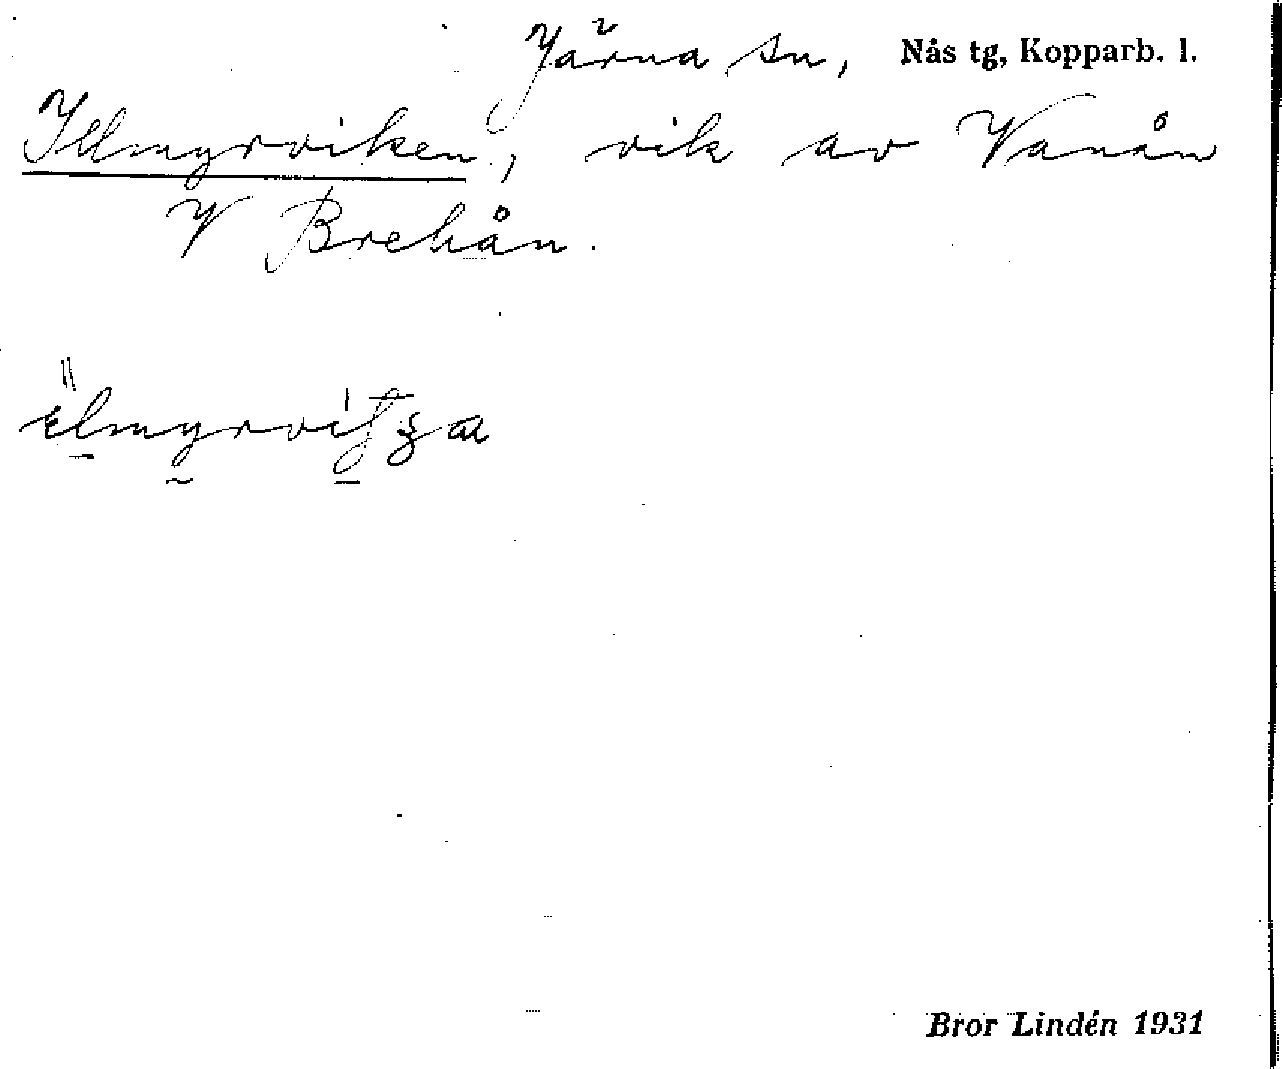 Järna sn, Nås tg, Kopparb. l.
Illmyrviken, vik av Vanån
V Brehån.
Bror Lindén 1931